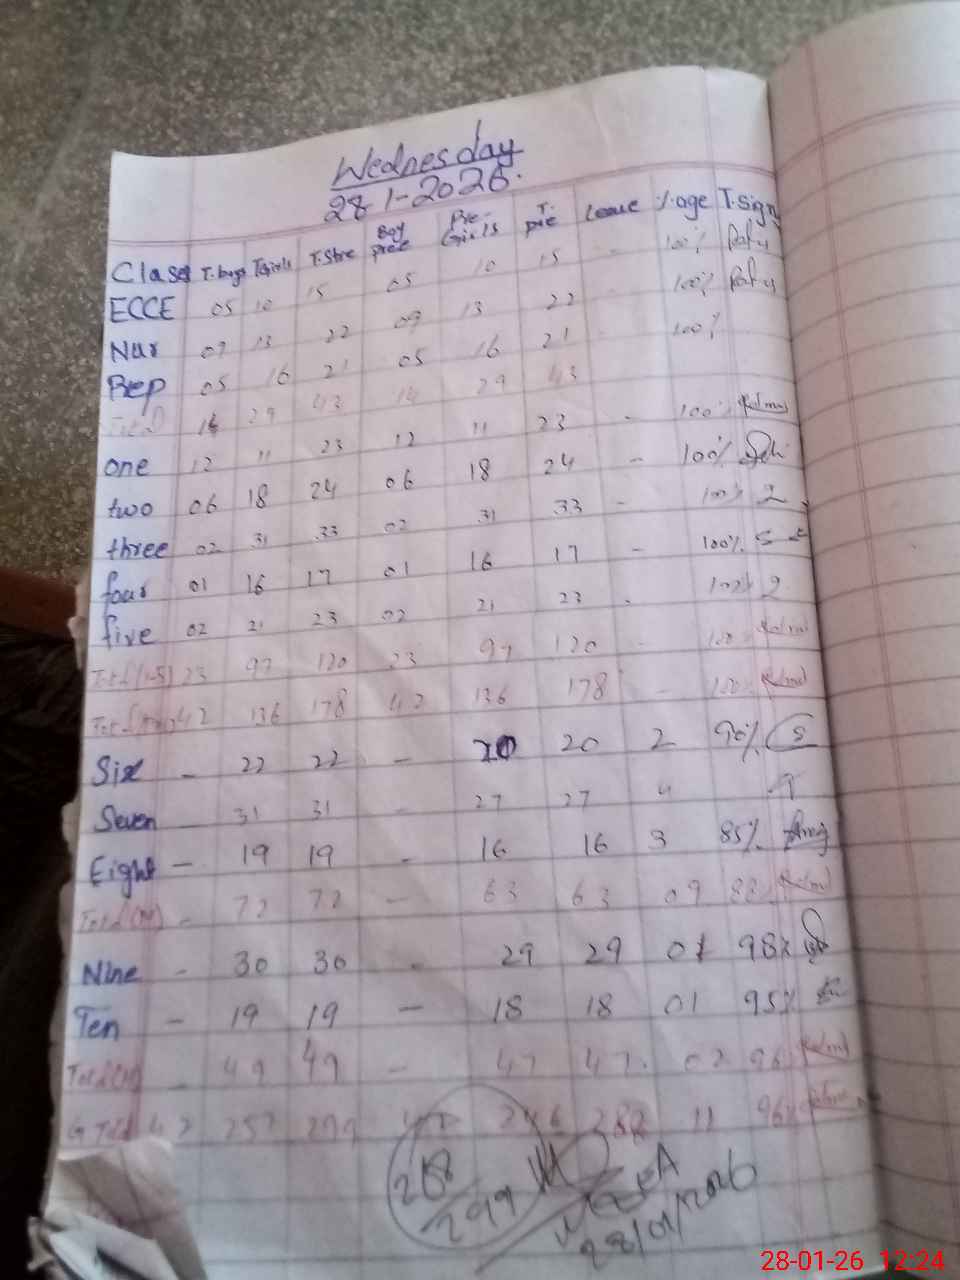 Wednesday
28-1-2026.
Class T.boys T.girls T.Stre Boy pree Pre-Girls T.pre Leave %age T.Sign
ECCE 05 10 15 05 10 15 - 100%
Nur 09 13 22 09 13 22 100%
Prep 05 16 21 05 16 21 100%
Total 14 29 43 14 29 43
one 12 11 23 12 11 23 - 100%
two 06 18 24 06 18 24 - 100%
three 02 31 33 02 31 33 - 100%
four 01 16 17 01 16 17 - 100%
five 02 21 23 02 21 23 - 100%
Total(1-5) 23 97 120 23 97 120 - 100%
Total 42 136 178 42 136 178 - 100%
Six - 22 22 - 20 20 2 90%
Seven 31 31 - 27 27 4
Eight - 19 19 - 16 16 3 85%
Total(M) - 72 72 - 63 63 09 88%
Nine - 30 30 - 29 29 01 98%
Ten - 19 19 - 18 18 01 95%
Total(H) - 49 49 - 47 47 02 96%
G Total 42 257 299 42 246 288 11 96%
288
299
28/01/2026
28-01-26 12:24